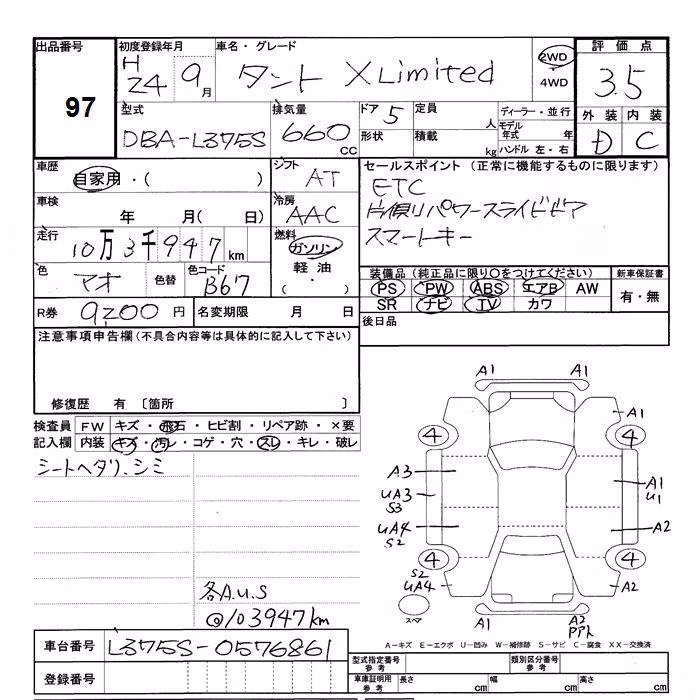 出品番号
97
初度登録年月
H
24 9月
車名・グレード
タント X Limited
2WD
・
4WD
評価点
3.5
外装 内装
D C
型式
DBA-L375S
排気量
660 CC
ドア 5
形状
定員 人
積載 kg
ディーラー・並行
モデル年式 年
ハンドル 左・右
車歴
自家用・( )
シフト
AT
車検
年 月( 日)
冷房
AAC
走行
10万3千947km
燃料
ガソリン
軽油
( ・ )
色
アオ
色替
色コード
B67
R券 9200 円
名変期限 月 日
セールスポイント (正常に機能するものに限ります)
ETC
片側パワースライドドア
スマートキー
装備品 (純正品に限り○をつけてください)
PS PW ABS エアB AW
SR ナビ TV カワ
新車保証書
有・無
後日品
注意事項申告欄(不具合内容等は具体的に記入して下さい)
修復歴 有 〔箇所 〕
検査員記入欄
FW キズ・飛石・ヒビ割・リペア跡・×要
内装 キズ・汚レ・コゲ・穴・スレ・キレ・破レ
シートヘタリ、シミ
各A.U.S
@103947km
A1 A1
A1
4 4
A3
UA3
S3
A1
U1
UA4
S2
A2
4 4
S2
UA4
A2
スペア
A1
A2
PPト
A−キズ E−エクボ U−凹み W−補修跡 S−サビ C−腐食 XX−交換済
車台番号 L375S-0576861
登録番号
型式指定番号
参考
類別区分番号
参考
車庫証明用
参考
長さ cm
幅 cm
高さ cm